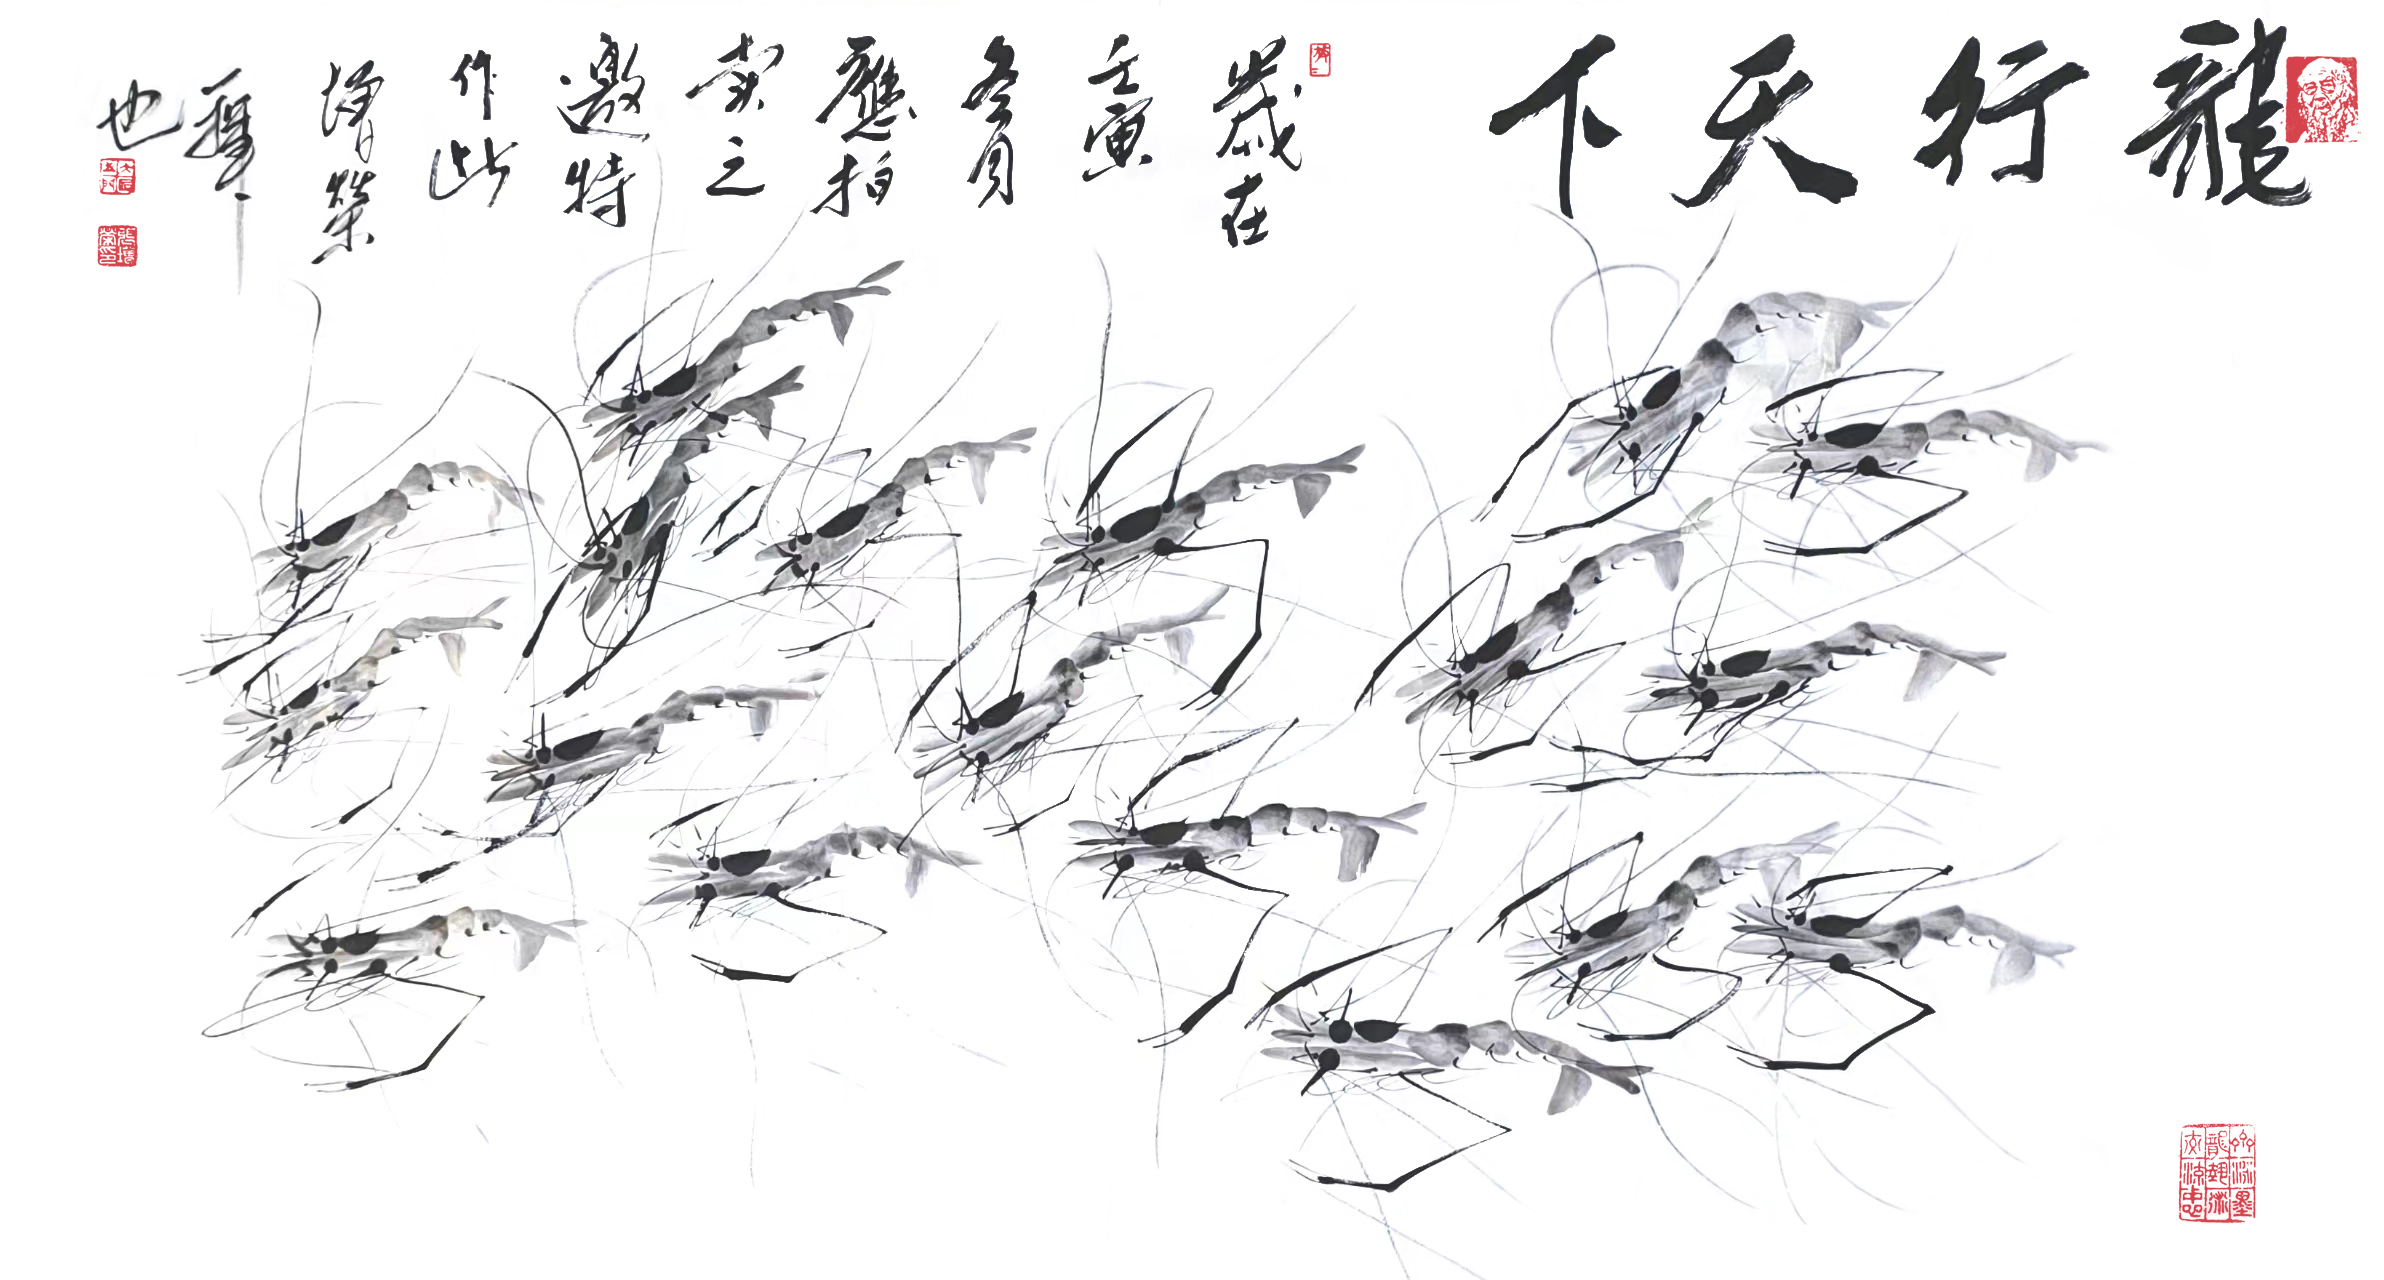 龍行天下
歲在
壬寅
冬月
應拍
賣之
邀特
作此
增榮
也